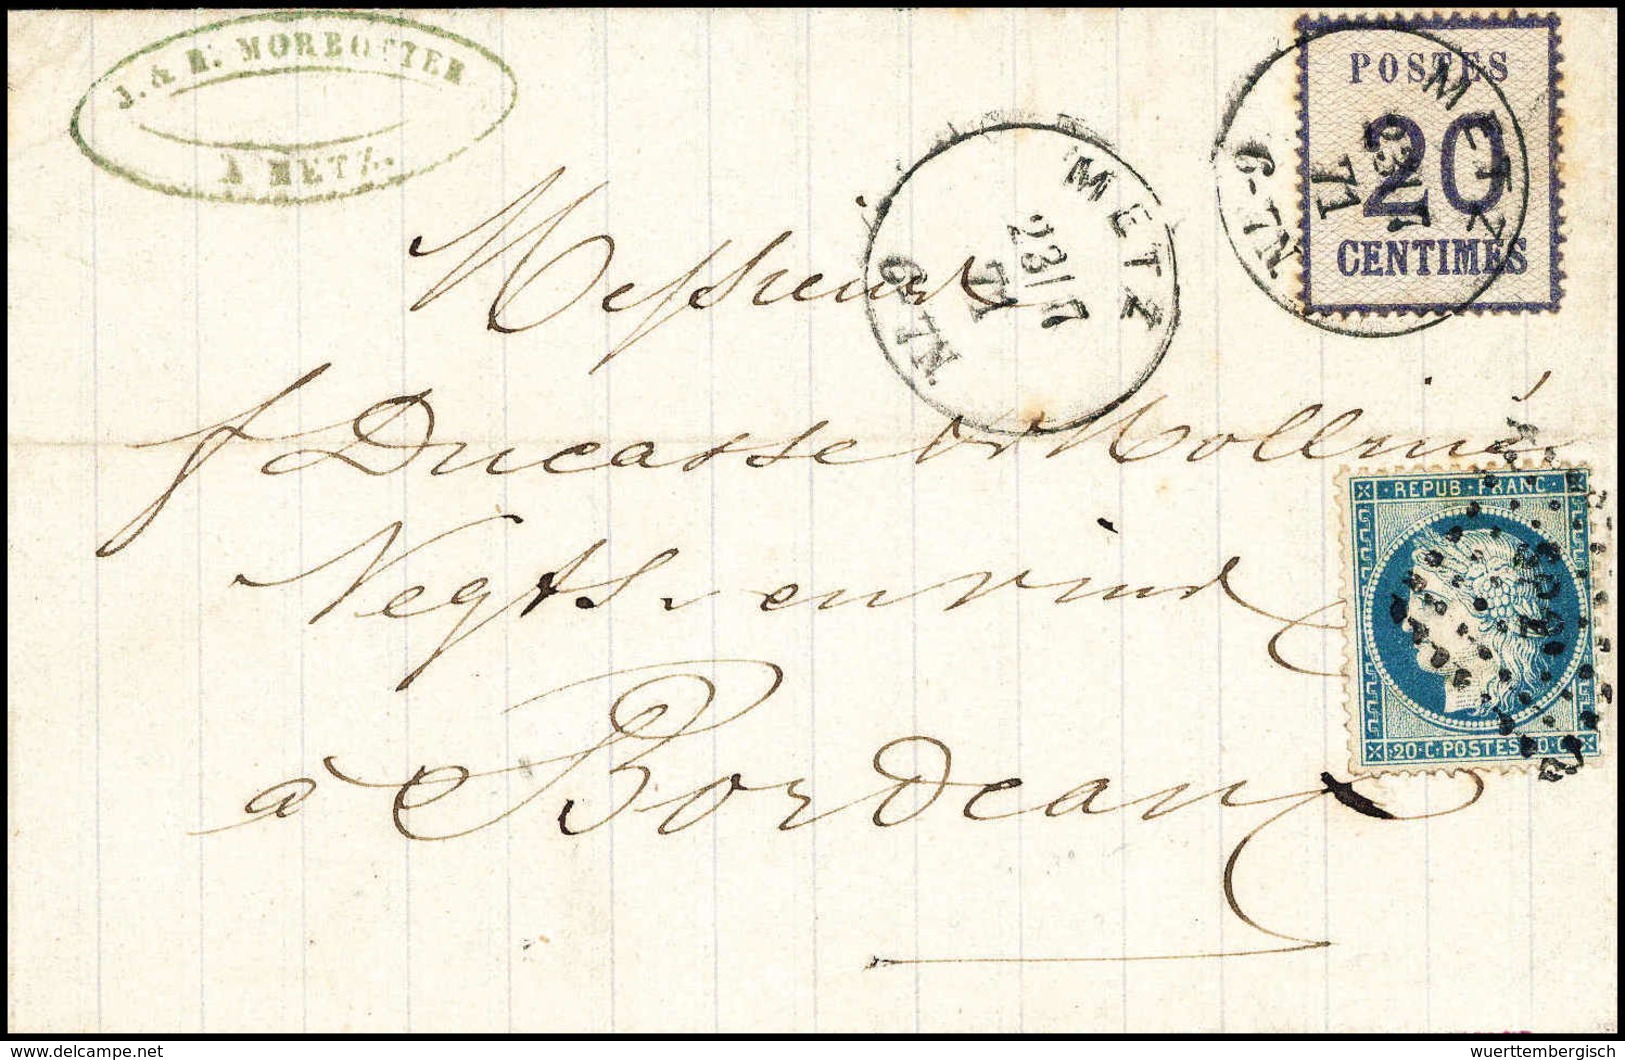 J. & E. MORHOTTER
A METZ.
POSTES
20
CENTIMES
METZ
23/7
71
6-7N
METZ
23/7
71
6-7N
Messieurs
Ducasse & Molliné
REPUB·FRANC·
Negts. en vins
à Bordeaux
·20·C·POSTES·20·C·
wuerttembergisch
www.delcampe.net